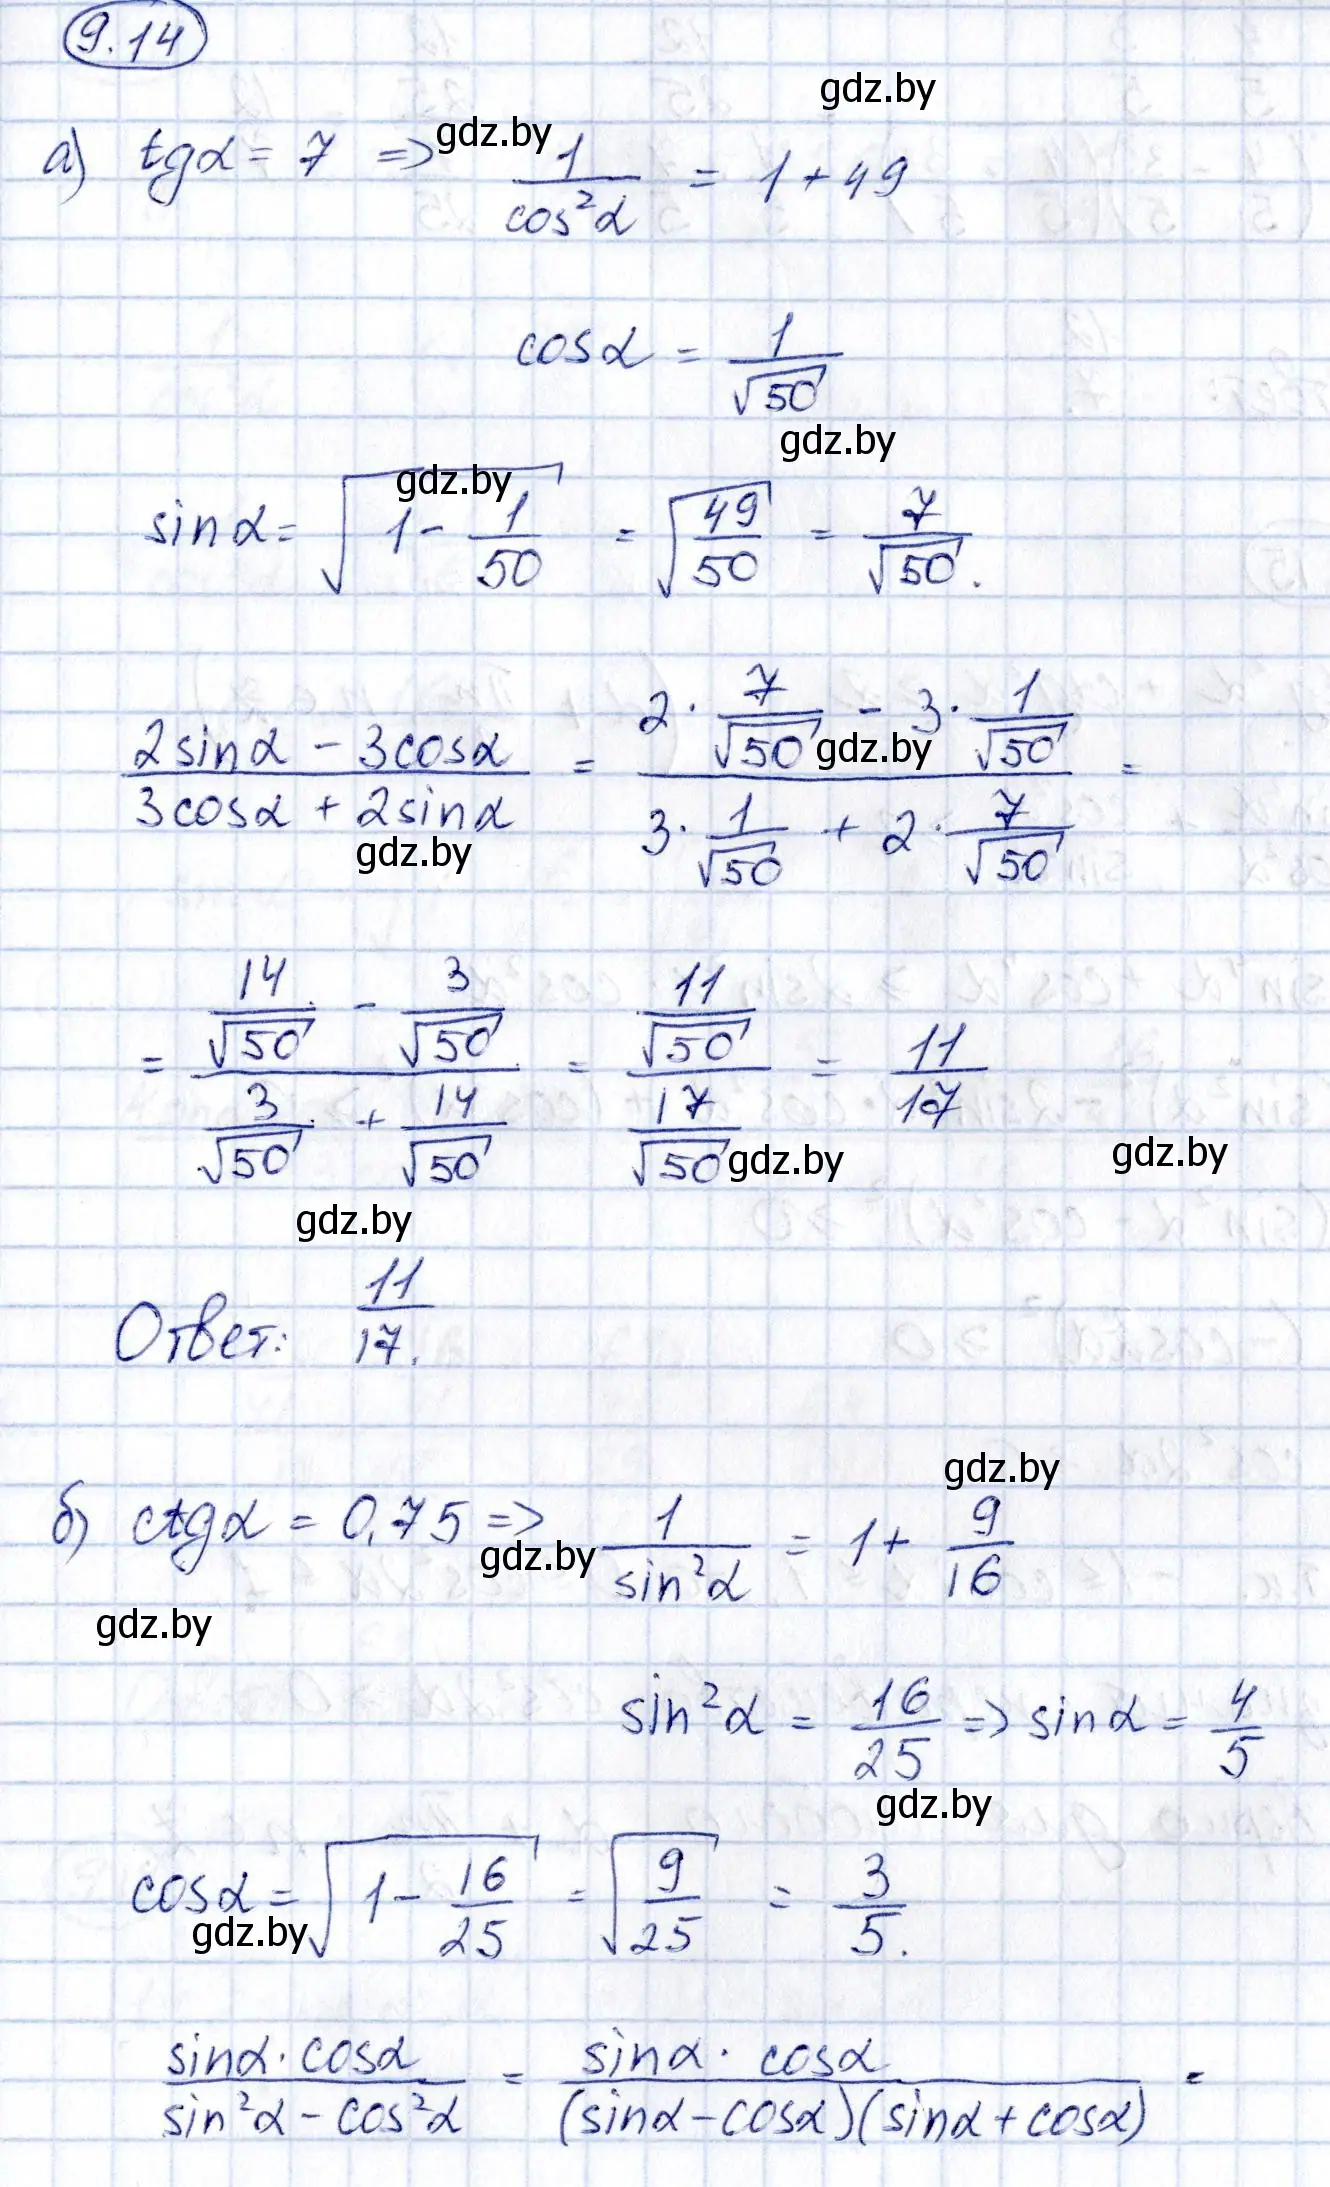 9.14
gdz.by
а) tgα = 7 => 1/cos²α = 1 + 49
gdz.by
cosα = 1/√50
gdz.by
gdz.by
sinα = √(1 - 1/50) = √(49/50) = 7/√50.
(2sinα - 3cosα)/(3cosα + 2sinα) = (2 · 7/√50 - 3 · 1/√50)/(3 · 1/√50 + 2 · 7/√50) =
gdz.by
gdz.by
= (14/√50 - 3/√50)/(3/√50 + 14/√50) = (11/√50)/(17/√50) = 11/17
gdz.by
gdz.by
gdz.by
Ответ: 11/17.
gdz.by
б) ctgα = 0,75 => 1/sin²α = 1 + 9/16
gdz.by
gdz.by
sin²α = 16/25 => sinα = 4/5
gdz.by
cosα = √(1 - 16/25) = √(9/25) = 3/5.
gdz.by
(sinα · cosα)/(sin²α - cos²α) = (sinα · cosα)/((sinα - cosα)(sinα + cosα)) =